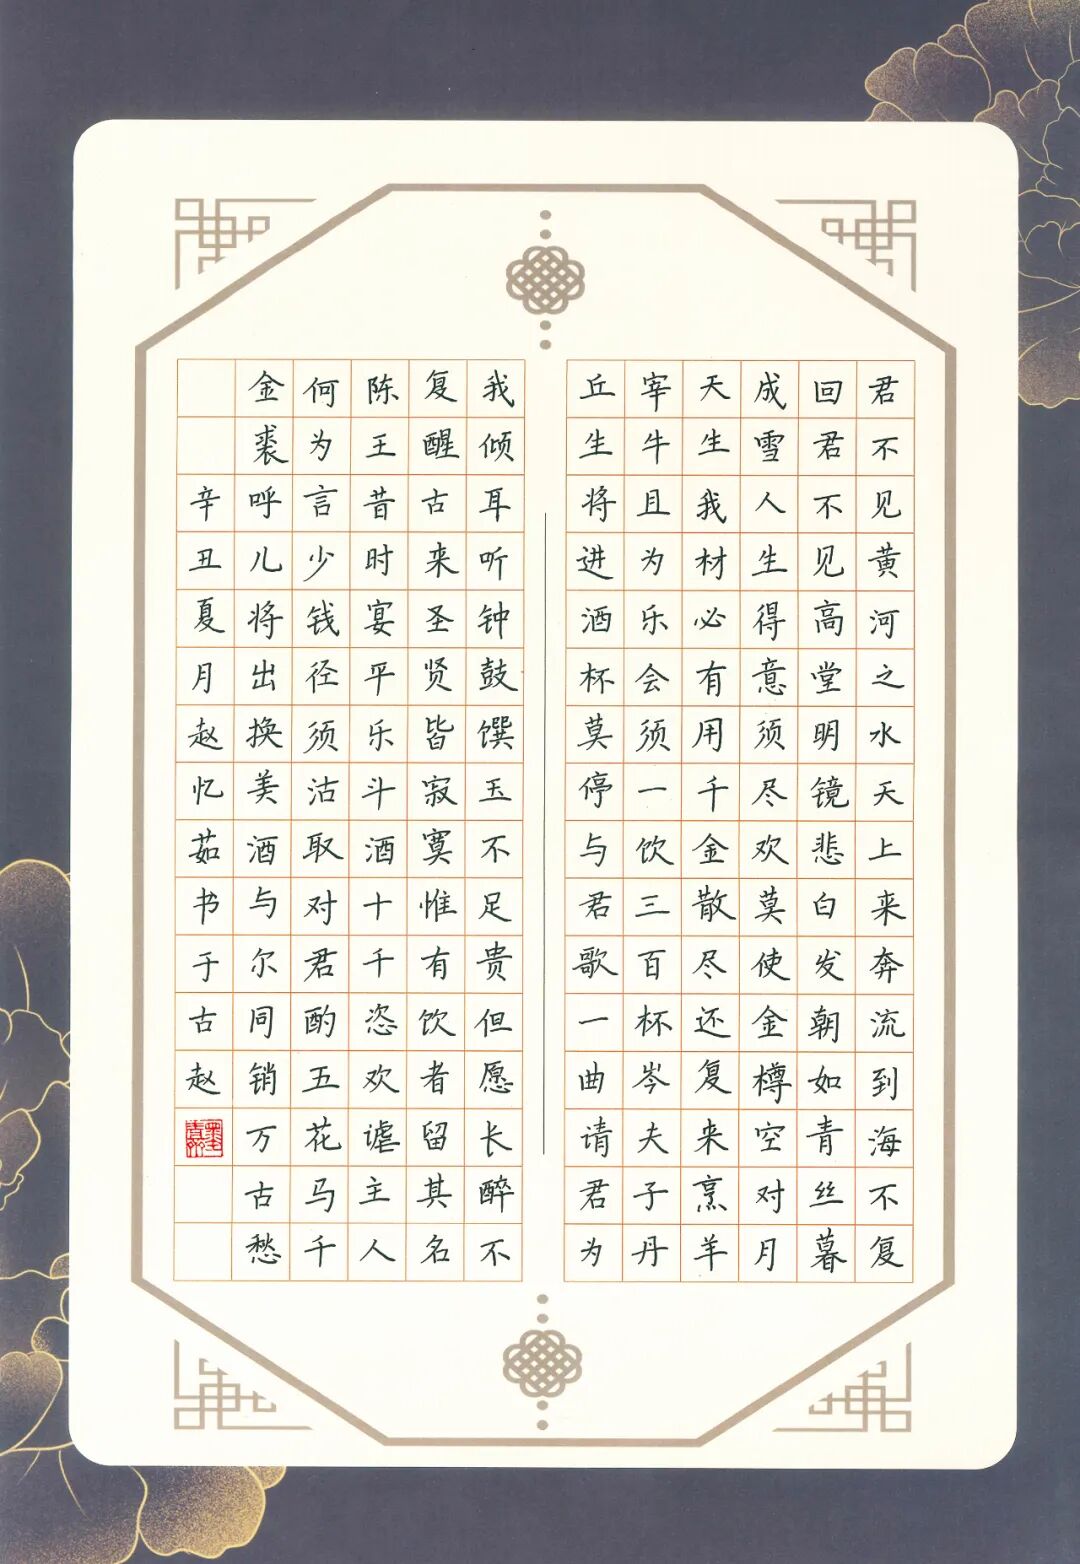 君不见黄河之水天上来奔流到海不复
回君不见高堂明镜悲白发朝如青丝暮
成雪人生得意须尽欢莫使金樽空对月
天生我材必有用千金散尽还复来烹羊
宰牛且为乐会须一饮三百杯岑夫子丹
丘生将进酒杯莫停与君歌一曲请君为
我倾耳听钟鼓馔玉不足贵但愿长醉不
复醒古来圣贤皆寂寞惟有饮者留其名
陈王昔时宴平乐斗酒十千恣欢谑主人
何为言少钱径须沽取对君酌五花马千
金裘呼儿将出换美酒与尔同销万古愁
辛丑夏月赵忆茹书于古赵